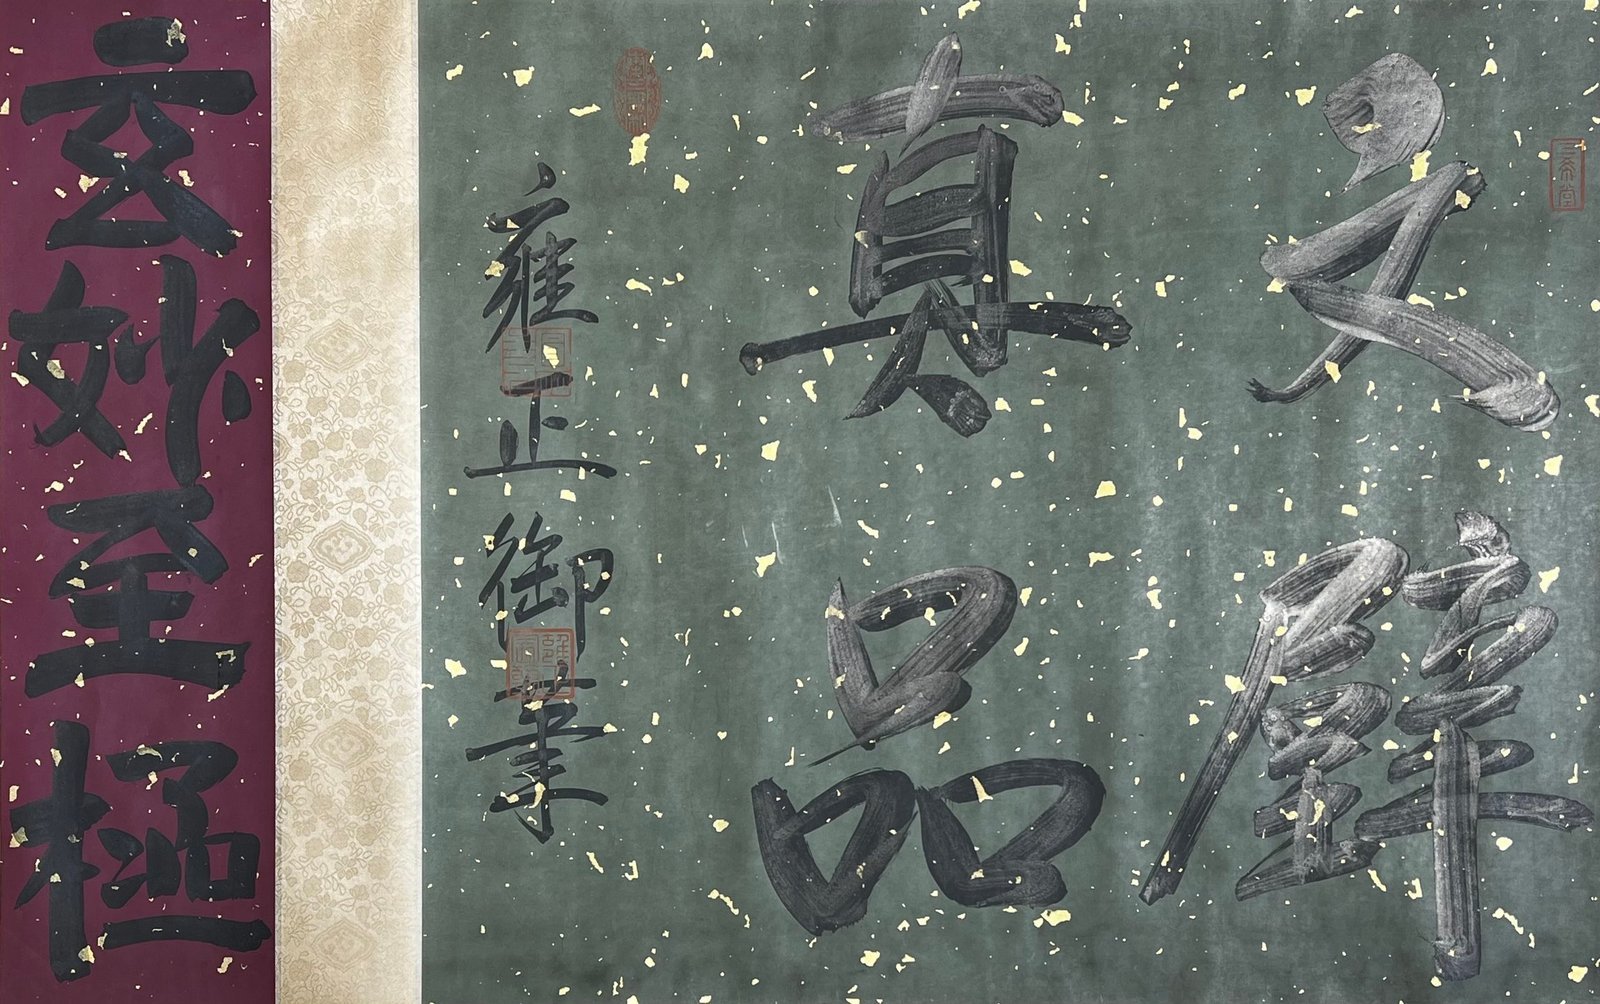 三希堂
文壁
真品
雍正御筆
玄妙至極